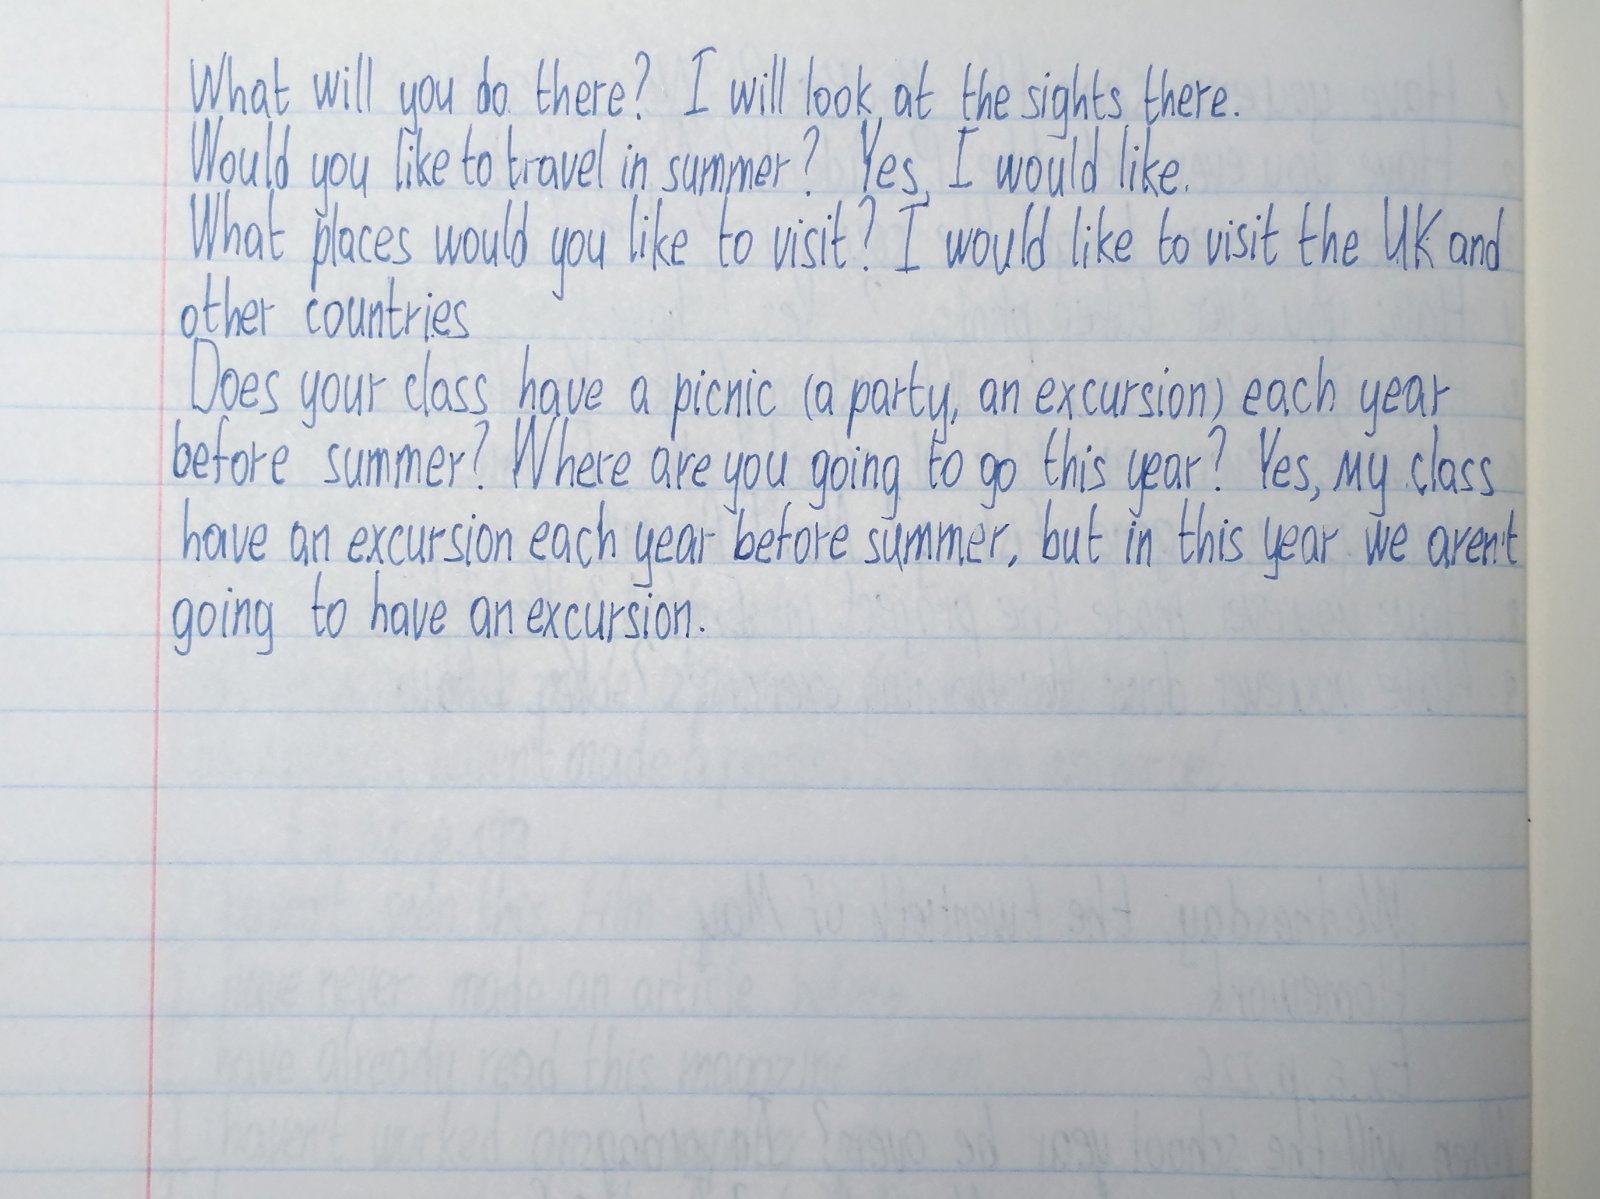 What will you do there? I will look at the sights there.
Would you like to travel in summer? Yes, I would like.
What places would you like to visit? I would like to visit the UK and
other countries
Does your class have a picnic (a party, an excursion) each year
before summer? Where are you going to go this year? Yes, my class
have an excursion each year before summer, but in this year we aren't
going to have an excursion.